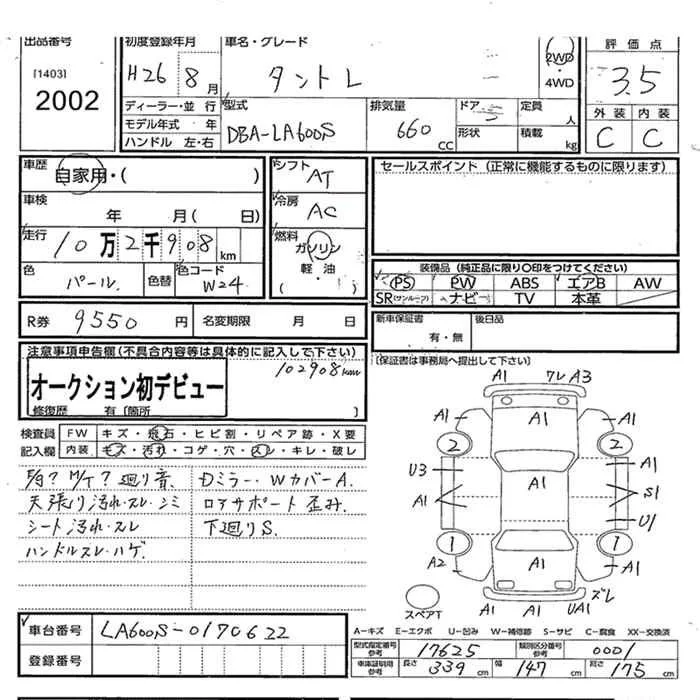 出品番号 初度登録年月 車名・グレード 2WD・4WD 評価点
[1403] 2002
H26 8月 タントL 3.5
ディーラー・並行 型式 排気量 ドア 定員 人 外装 内装
モデル年式 年 DBA-LA600S 660CC 形状 積載 kg C C
ハンドル 左・右
車歴 自家用・( ) シフト AT セールスポイント (正常に機能するものに限ります)
車検 年 月( 日) 冷房 AC
走行 10万2千908km 燃料 ガソリン・軽油・( )
色 パール. 色替 色コード W24
装備品 (純正品に限り○印をつけてください)
PS PW ABS エアB AW
SR(サンルーフ) ナビー TV 本革
R券 9550円 名変期限 月 日
新車保証書 有・無 後日品
注意事項申告欄(不具合内容等は具体的に記入して下さい)
(保証書は事務局へ提出して下さい)
102908km
オークション初デビュー
修復歴 有 (箇所 )
検査員記入欄 FW キズ・飛石・ヒビ割・リペア跡・X要
内装 キズ・汚れ・コゲ・穴・スレ・キレ・破レ
廻り音. Dミラー・WカバーA.
天張り汚れ・スレ・シミ ロアサポート歪み.
シート汚れ・スレ 下廻りS.
ハンドルスレ・ハゲ.
A1 ワレ A3
A1 A1 A1
2 2
U3 A1
A1 A1 S1
U1
1 1
A2 A1 A1
スペアT
A1 A1 UA1 ズレ
車台番号 LA600S-0170622
登録番号
A-キズ E-エクボ U-凹み W-補修跡 S-サビ C-腐食 XX-交換済
型式指定番号参考 17625 類別区分番号参考 0001
車庫証明用参考 長さ 339cm 幅 147cm 高さ 175cm